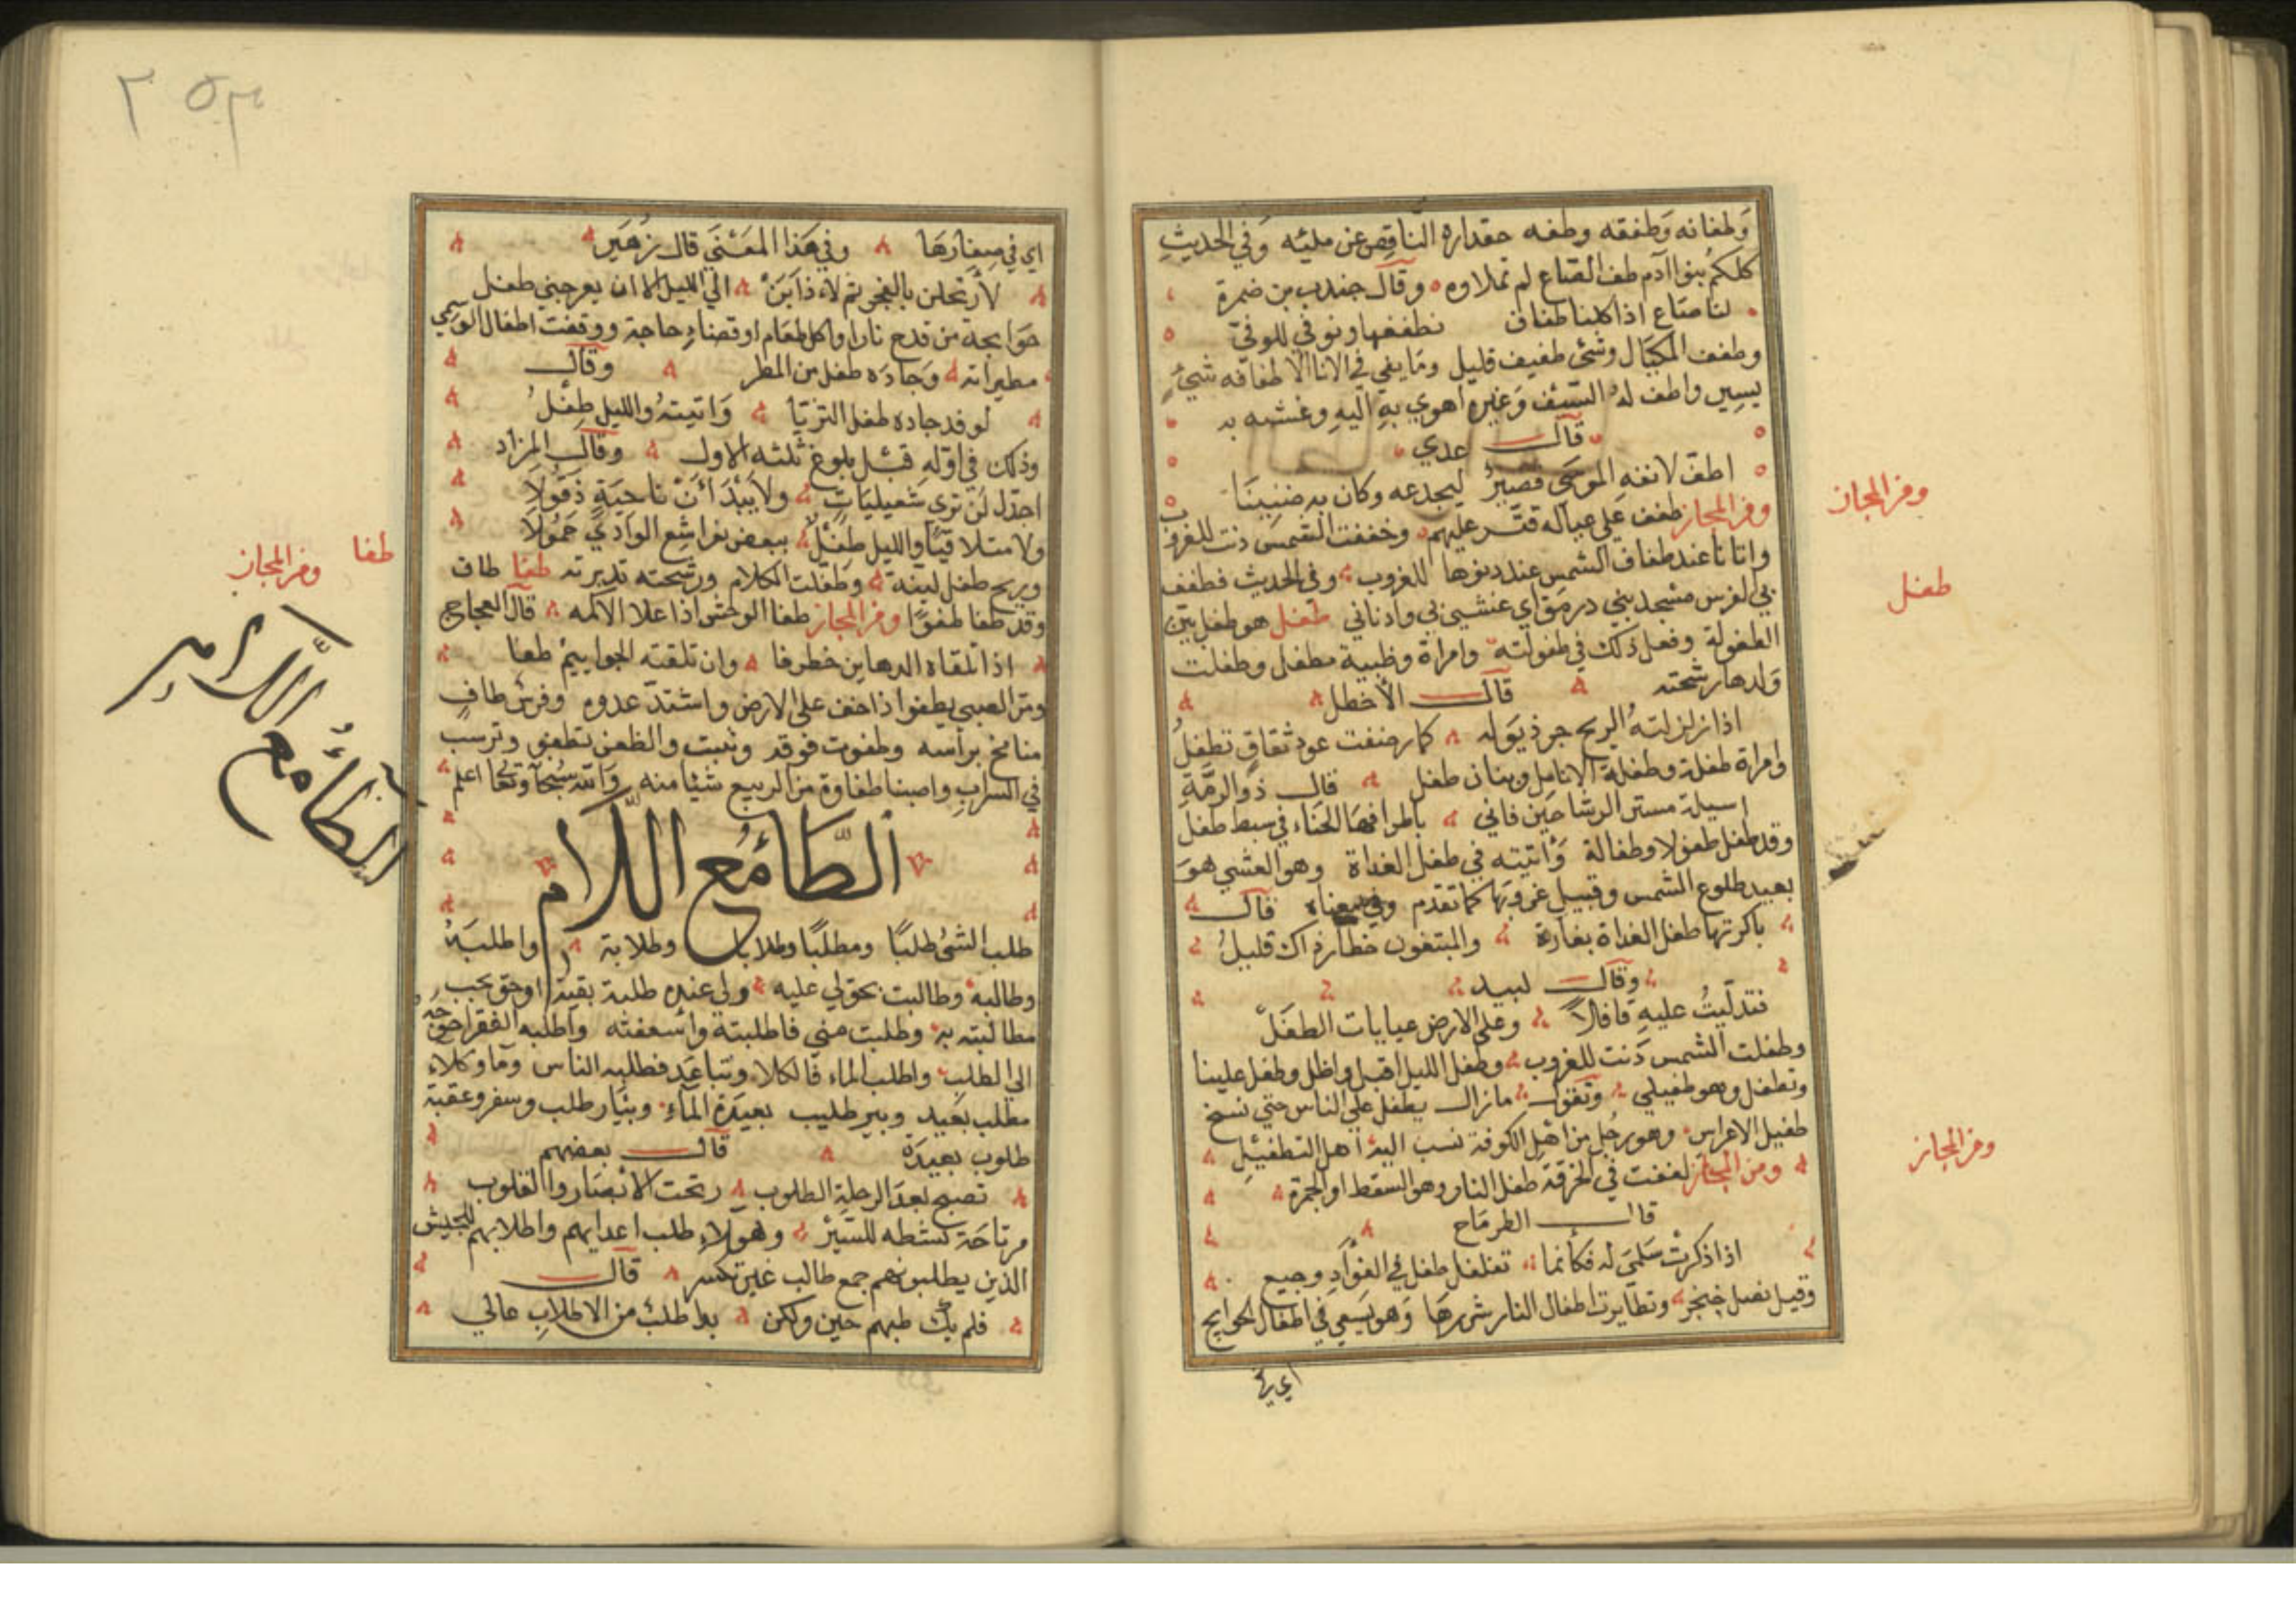 وطفافه وطففه وطفه مقداره الناقص عن ملئه وفي الحديث
كلكم بنوا آدم طف الصاع لم تملاوه وقال جندب بن ضمرة
لنا صاع اذا كلنا طفاف نطففها ونوفي للوفي
وطفف المكيال وشئ طفيف قليل وما بقي في الانا الا طفافه شيء
يسير واطف له السيف وغيره اهوي به اليه وغشيه به
قال عدي
اطف لانفه الموسى قصير ليجدعه وكان به ضنينا
ومن المجاز طفف على عياله قتر عليهم وخففت الشمس دنت للغروب
واتانا عند طفاف الشمس عند دنوها للغروب وفي الحديث فطفف
بي الفرس مسجد بني زريق اي غشي بي وادناني طفل هو طفل بين
الطفولة وفعل ذلك في طفولته وامراة وظبية مطفل وطفلت
ولدها رشحته قال الأخطل
اذا زلزلته الريح جر ذيوله كما رضفت عود ثقاق تطفل
وامراة طفلة وطفلة الانامل وبنان طفل قال ذو الرمة
اسيلة مستن الرشاحين قاني باطرافها الحناء في سبط طفل
وقد طفل طفولا وطفالة وأتيته في طفل الغداة وهو العشي هو
بعيد طلوع الشمس وقبيل غروبها كما تقدم وفي معناه قال
باكرتها طفل الغداة بغارة والمبتغون خطار ذاك قليل
وقال لبيد
فتدليت عليه قافلا وعلى الارض غيابات الطفل
وطفلت الشمس دنت للغروب وطفل الليل اقبل واظل وطفل علينا
وتطفل وهو طفيلي وتقول مازال يطفل على الناس حتي نسخ
طفيل الاعراس وهو رجل من اهل الكوفة نسب اليه اهل التطفيل
ومن المجاز لففت في الخرقة طفل النار وهو السقط او الجمرة
قال الطرماح
اذا ذكرت سلمى له فكأنما تغلغل طفل في الفؤاد وجيع
وقيل نصل خنجر وتطايرت اطفال النار شررها وهو يسعى في اطفال الحوايج
اي في
ومن المجاز
طفل
ومن المجاز
٢٥٣
اي في صغارها وفي هذا المعنى قال زهير
لأرتحلن بالفجر ثم لادابن الي الليل الا ان يعرجني طفل
حوايجه من قدح نار او اكل طعام او قضاء حاجة ووقفت اطفال الوسمي
مطيراته وجاده طفل من المطر وقال
لوفد جاده طفل الثريا واتيته والليل طفل
وذلك في اوله قبل بلوغ ثلثه الاول وقال المزاد
احدل لن تري شعيليات ولا بيدان ناجية ذمولا
ولا متلاقيا والليل طفل ببعض نواشع الوادي حمولا
وريح طفل لينة وطفلت الكلام ورشحته تدبرته طفا طاف
وقد طفا طفوا ومن المجاز طفا الوحش اذا علا الاكمه قال العجاج
اذا تلقاه الدهاس خطرفا وان تلقته الجراثيم طفا
ومر الصبي يطفوا اذا خف على الارض واشتد عدوه وفرس طاف
شامخ براسه وطفوت فوقه وثبت والظعن تطفو وترسب
في السراب واصبنا طفاوة من الربيع شيئا منه والله سبحانه وتعا اعلم
الطاء مع اللام
طلب الشئ طلبا ومطلبا وطلابا وطلابة واطلبه
وطالبه وطالبت بحق لي عليه ولي عنده طلبة بقية او حق يجب
مطالبته به وطلبت مني فاطلبته واسعفته واطلبه الفقر احوجه
الي الطلب واطلب الماء فالكلاء وتباعد فطلبه الناس وماء وكلاء
مطلب بعيد وبير طليب بعيدة الماء وبئار طلب وسفر وعقبة
طلوب بعيدة قال بعضهم
تصبح بعد الرحلة الطلوب رتحت الانصار والغلوب
مرتاحة نشطه للسير وهولاء طلب اعدايهم واطلابهم للجيش
الذين يطلبونهم جمع طالب غير تكسر قال
فلم يك طبهم حين ولكن بدا طلب من الاطلاب عالي
طفا
ومن المجاز
الطاء مع اللام